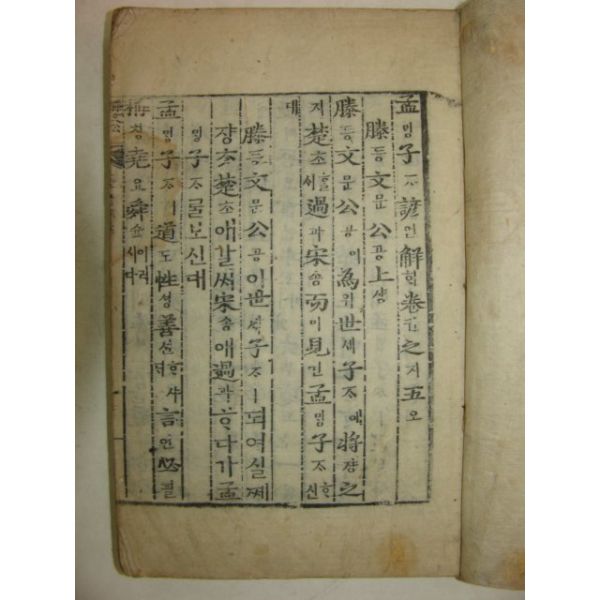 孟ᄆᆡᆼ子ᄌᆞ諺언解ᄒᆡ卷권之지五오
滕등文문公공上샹
滕등文문公공이為위世셰子ᄌᆞ에將쟝之
지楚초ᄒᆞᆯ시過과宋송而이見견孟ᄆᆡᆼ子ᄌᆞᄒᆞ신
대
滕등文문公공이世셰子ᄌᆞㅣ되여실ᄶᅦ
쟝ᄎᆞ楚초애갈ᄊᆡ宋송애過과ᄒᆞ다가孟
ᄆᆡᆼ子ᄌᆞᄅᆞᆯ보신대
孟ᄆᆡᆼ子ᄌᆞㅣ道도性셩善션ᄒᆞ샤ᄃᆡ言언必필
稱칭堯요舜슌이러시다